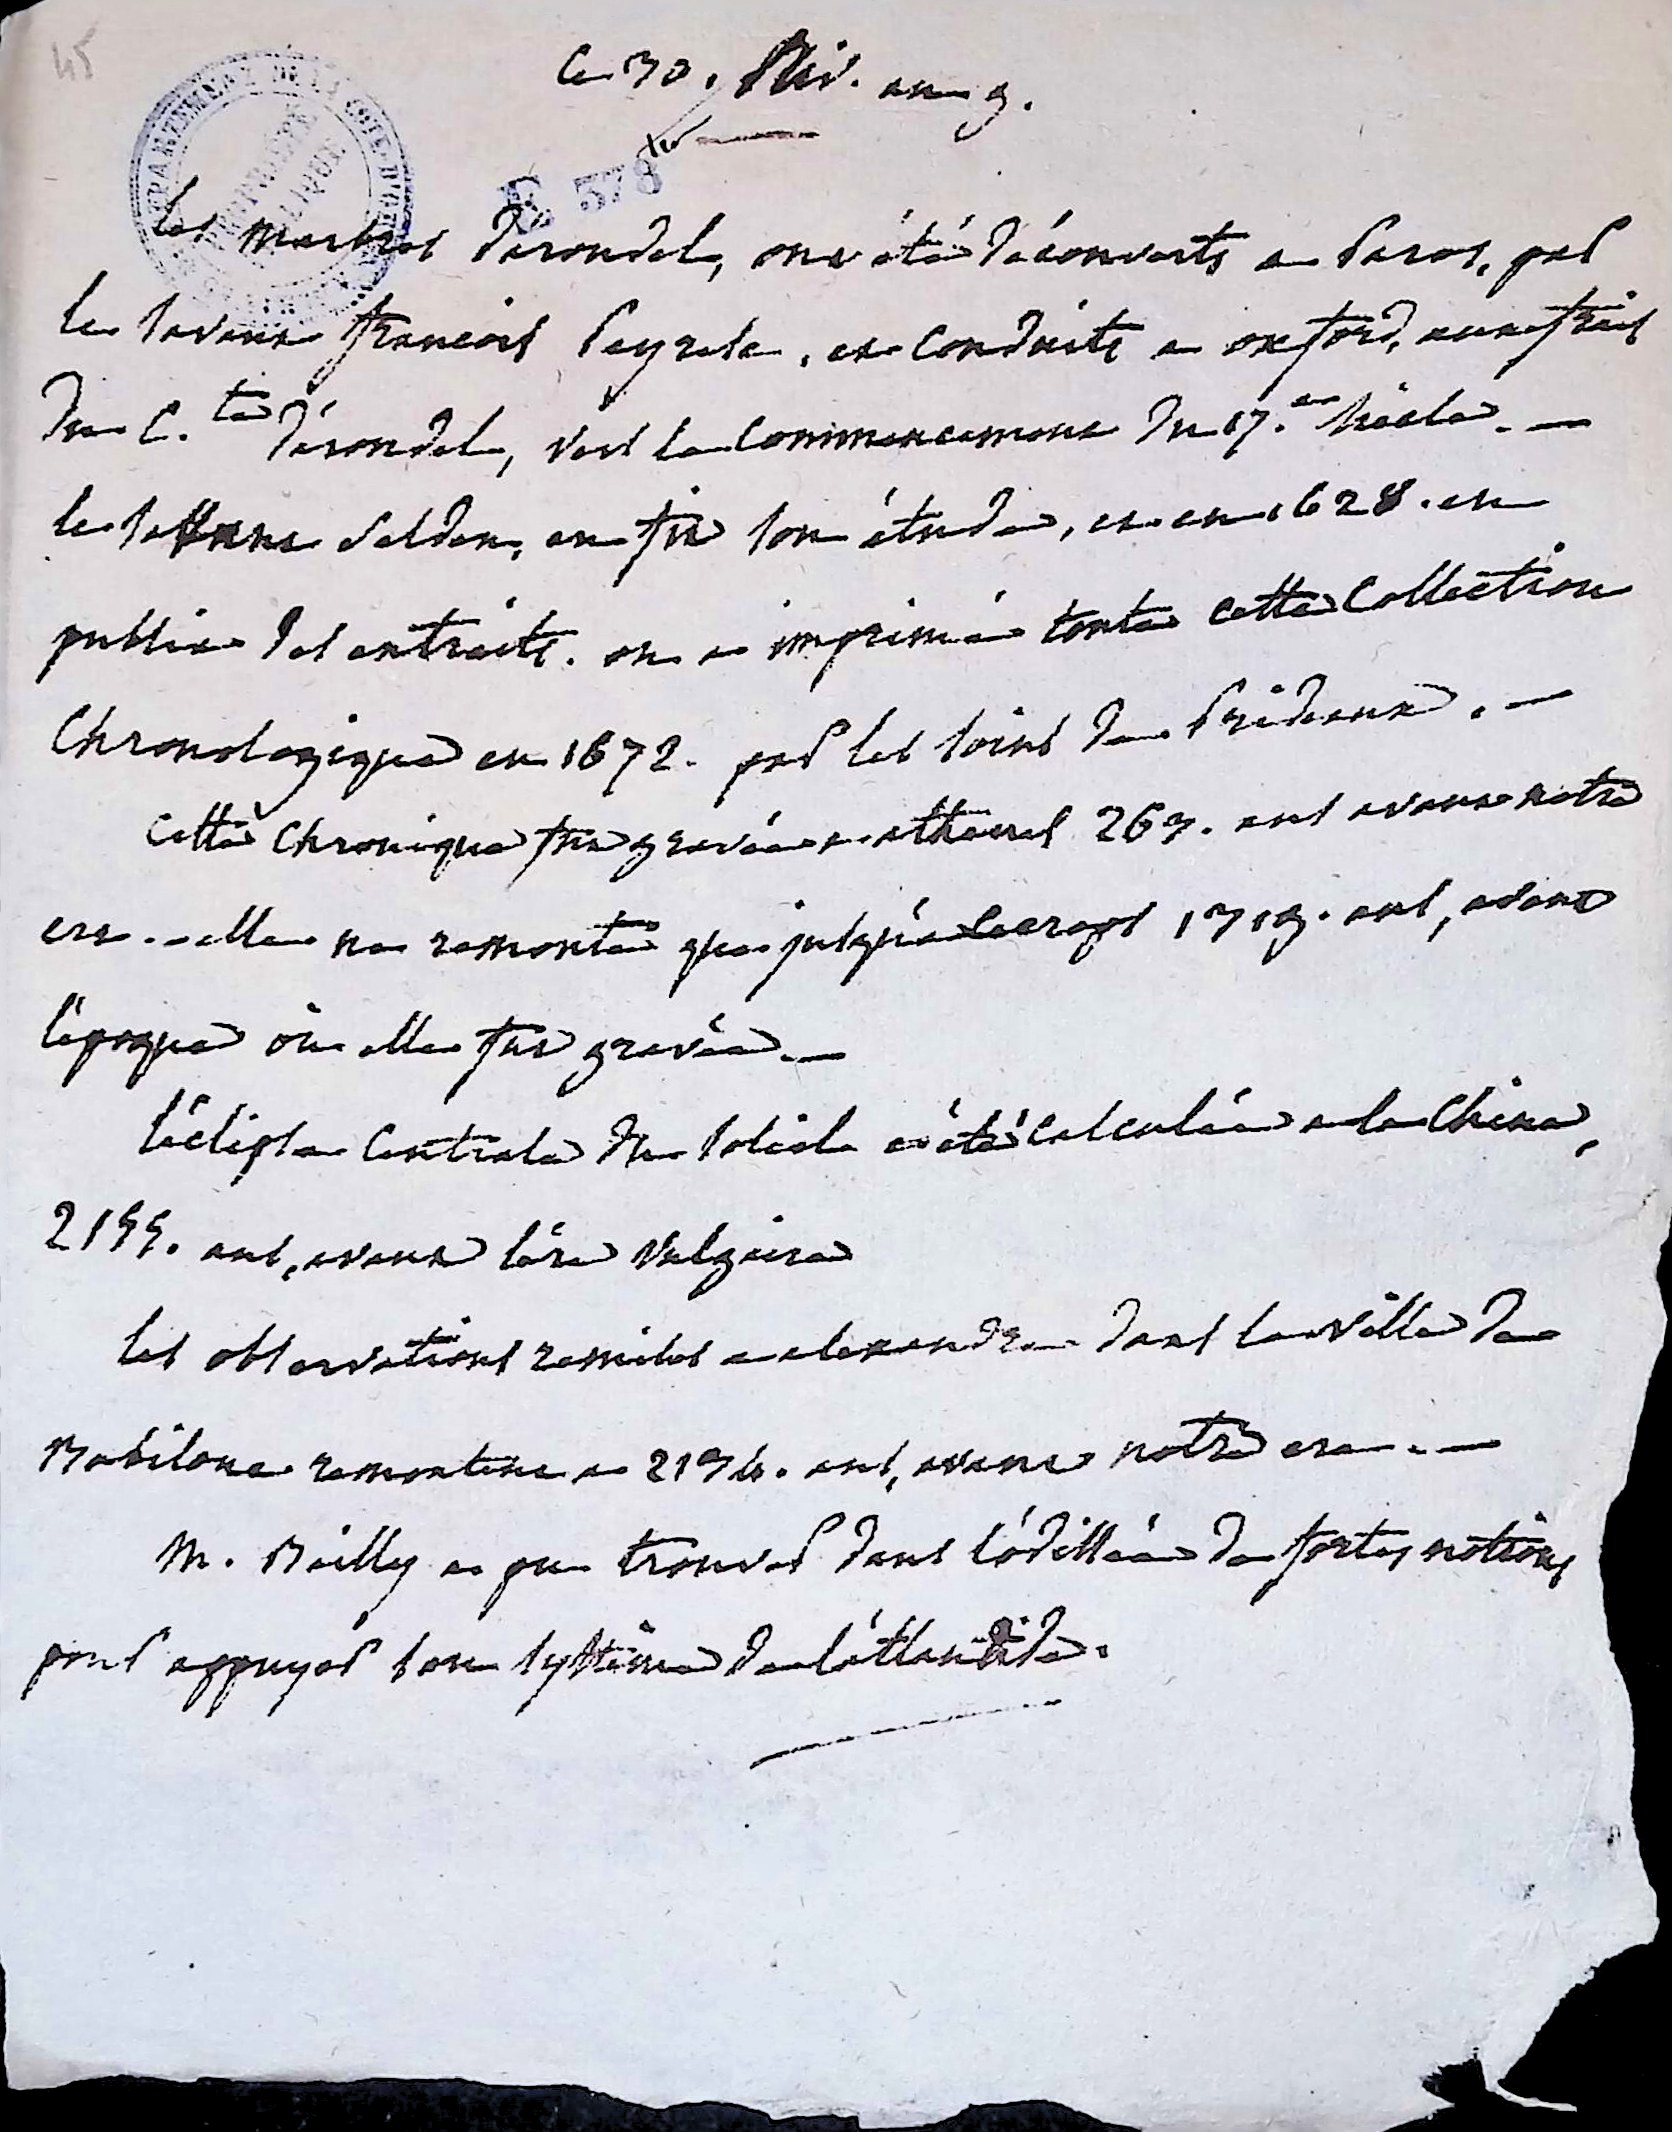 45
Ce 30. Niv. an 9.
E 378
les marbres d'arondel, ont été découverts a Paros, par
le savant françois Peyresc, et conduits a oxford, aux frais
du C.te d'arondel, vers le commencement du 17.e siècle. —
le savant Selden, en fit son étude, et en 1628. en
publia des extraits. on a imprimé toute cette Collection
Chronologique en 1672. par les soins de Prideaux. —
cette chronique fut gravée a athenes 263. ans avant notre
ere. - elle ne remonte que jusqu'a Cecrops 1319. ans, avant
l'époque où elle fut gravée. —
l'éclipse Centrale du soleil a été calculée a la Chine,
2155. ans, avant l'ère vulgaire
les observations remises a alexandre dans la ville de
Babilone remontent a 2234. ans, avant notre ere. —
M. Bailly a pu trouver dans l'odissée de fortes notions
pour appuyer son systême de l'atlantide.